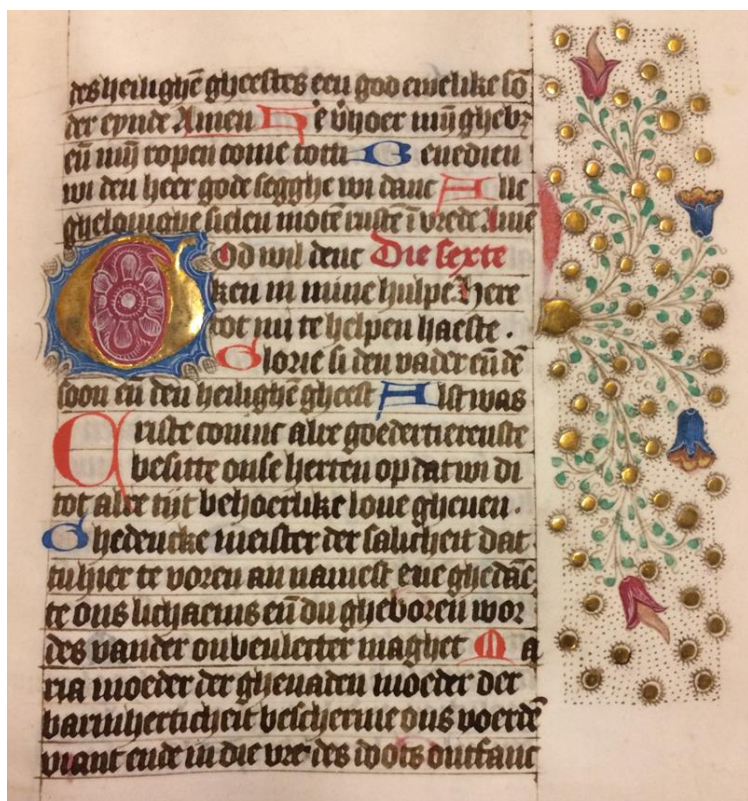 des heilighē gheestes een god ewelike sō
der eynde Amen H e v̄hoer mȳ ghebꝫ
eñ mȳ ropen come totti G enedien
wi den heer gode segghe wi danc A lle
ghelouighe sielen motē ruste ī vrede Amē
G od wil denc Die sexte
ken in mine hulpe Here
tot mi te helpen haeste .
G lorie si den vader eñ dē
soon eñ den heilighē gheest A lst was
C riste comme alre goedertierenste
besitte onse herten op dat wi di
tot alre tijt behoerlike loue gheuen .
G hedencke meister der salicheit dat
tu hier te voren an naemst ene ghedāē
te ons lichaems eñ du gheboren wor
des vander onbeulecter maghet M a
ria moeder der ghenaden moeder der
barmherticheit bescherme ons voerdē
viant ende in die vre des doots ontfanc